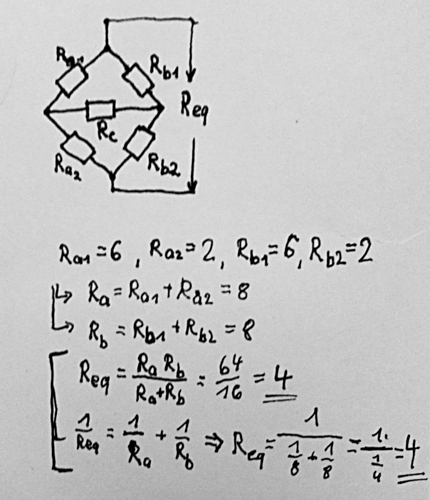 Ra1 Rb1
Rc Req
Ra2 Rb2
Ra1=6, Ra2=2, Rb1=6, Rb2=2
↳ Ra=Ra1+Ra2=8
↳ Rb=Rb1+Rb2=8
Req=Ra Rb/Ra+Rb=64/16=4
1/Req=1/Ra+1/Rb ⇒ Req=1/(1/8+1/8)=1/(1/4)=4